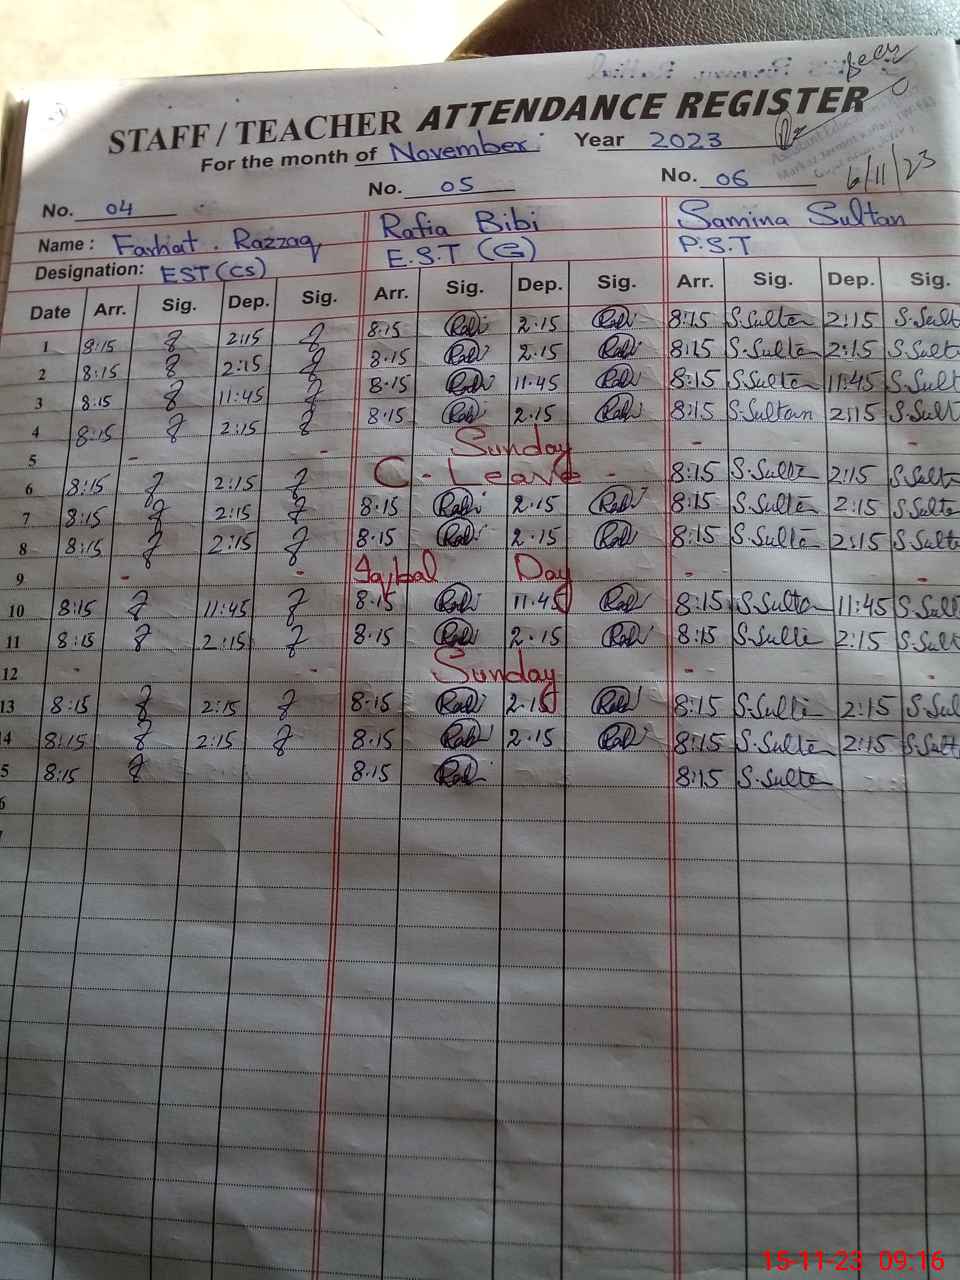 seen
STAFF / TEACHER ATTENDANCE REGISTER
For the month of November Year 2023
6/11/23
No. 04 No. 05 No. 06
Name : Farhat . Razzaq Rafia Bibi Samina Sultan
Designation: EST (CS) E.S.T (G) P.S.T
Date Arr. Sig. Dep. Sig. Arr. Sig. Dep. Sig. Arr. Sig. Dep. Sig.
1 8:15 2:15 8.15 Rabi 2.15 Rabi 8:15 S.Sultan 2:15 S.Sult
2 8:15 2:15 8.15 Rabi 2.15 Rabi 8:15 S.Sultan 2:15 S.Sult
3 8:15 11:45 8.15 Rabi 11.45 Rabi 8:15 S.Sultan 11:45 S.Sult
4 8:15 2:15 8.15 Rabi 2.15 Rabi 8:15 S.Sultan 2:15 S.Sult
5 - - Sunday - -
6 8:15 2:15 C - Leave - 8:15 S.Sulta 2:15 S.Sulta
7 8:15 2:15 8.15 Rabi 2.15 Rabi 8:15 S.Sulta 2:15 S.Sulta
8 8:15 2:15 8.15 Rabi 2.15 Rabi 8:15 S.Sulta 2:15 S.Sulta
9 - - Iqbal Day - -
10 8:15 11:45 8.15 Rabi 11.45 Rabi 8:15 S.Sulta 11:45 S.Sult
11 8:15 2:15 8.15 Rabi 2.15 Rabi 8:15 S.Sulta 2:15 S.Sult
12 - - Sunday - -
13 8:15 2:15 8.15 Rabi 2.15 Rabi 8:15 S.Sulta 2:15 S.Sul
14 8:15 2:15 8.15 Rabi 2.15 Rabi 8:15 S.Sultan 2:15 S.Sult
5 8:15 8.15 Rabi 8:15 S.Sultan
6
7
15-11-23 09:16